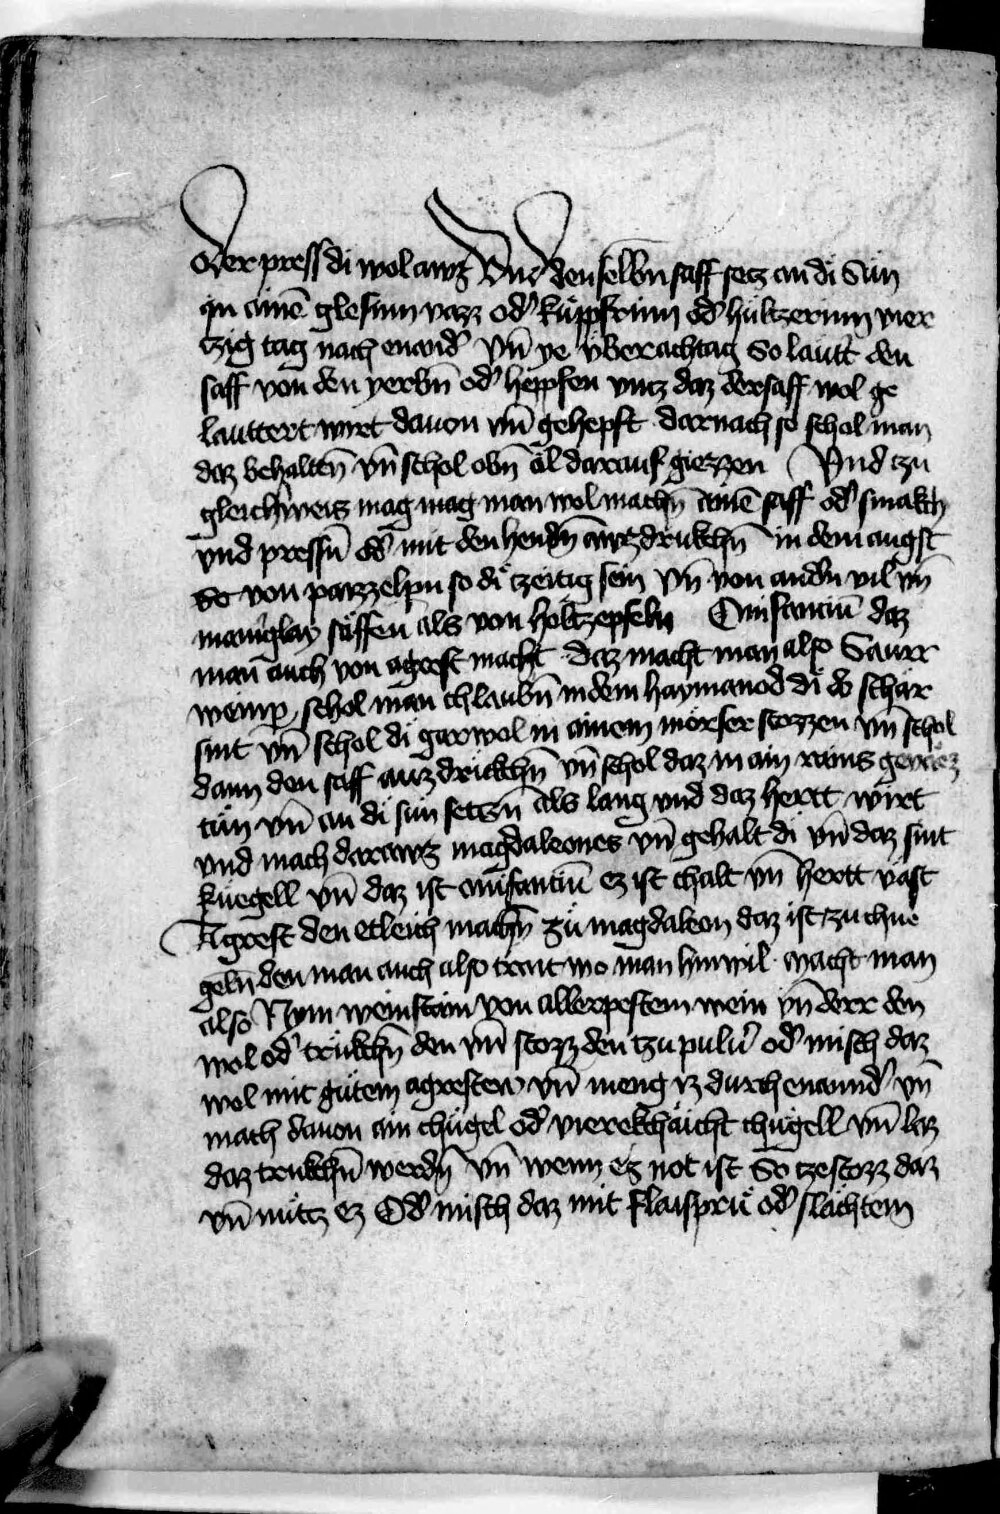 Oder press di wol awz Vnd den selbn̄ saff secz an di Sun
in ainē glesinn vazz od' kuppfrinn od' hultzerinn vier
tzig tag nach enand' vn̄ ye vber achtag So lautt' den
saff von den yerbn̄ od' heppfen vncz daz der saff wol ge
lauttert wirt dauon vn̄ gehepft darnach so schol man
daz behaltn̄ vn̄ schol obn̄ öl darauf giezzen Vnd tzu
gleich'weis mag mag man wol machn̄ ainē saff od' smakch
vnd pressn̄ od' mit den hendn̄ awzdrukchn̄ in dem augst
do von pazzelpn so di tzeitig sein vn̄ von and'n vil vn̄
manig'lay säffen als von holtzepfeln Omfanciū daz
man auch von agrest macht daz macht man also Saurr
weinp schol man chlaubn̄ in dem haymanod di do scharr
sint vn̄ schol di gar wol in ainem mörser stozzen vn̄ schol
dann den saff auz drickchn̄ vn̄ schol daz in ain rains
tun vn̄ an di sun seczn̄ als lang vnd daz hertt wirt
vnd mach darawz magdaleones vn̄ gehalt di vn̄ daz sint
kuegell vn̄ daz ist omfanciū ez ist chalt vn̄ hertt vast
Agrest den etleich machn̄ zu magdaleon daz ist zu chue
geln̄ den man auch also trait wo man hin wil macht man
also Nym weinstain von allerpestem wein vn̄ derr den
wol od' trukchn̄ den vn̄ stozz den tzu pulu' od' misch daz
wol mit gutem agresten vn̄ meng iz durch enannd' vn̄
mach dauon ain chugel od' vierekchaicht chugell vn̄ laz
daz trukchn̄ werdn̄ vn̄ wenn ez not ist So tzestozz daz
vn̄ nutz ez Od' misch daz mit flaisprü od' slächtem